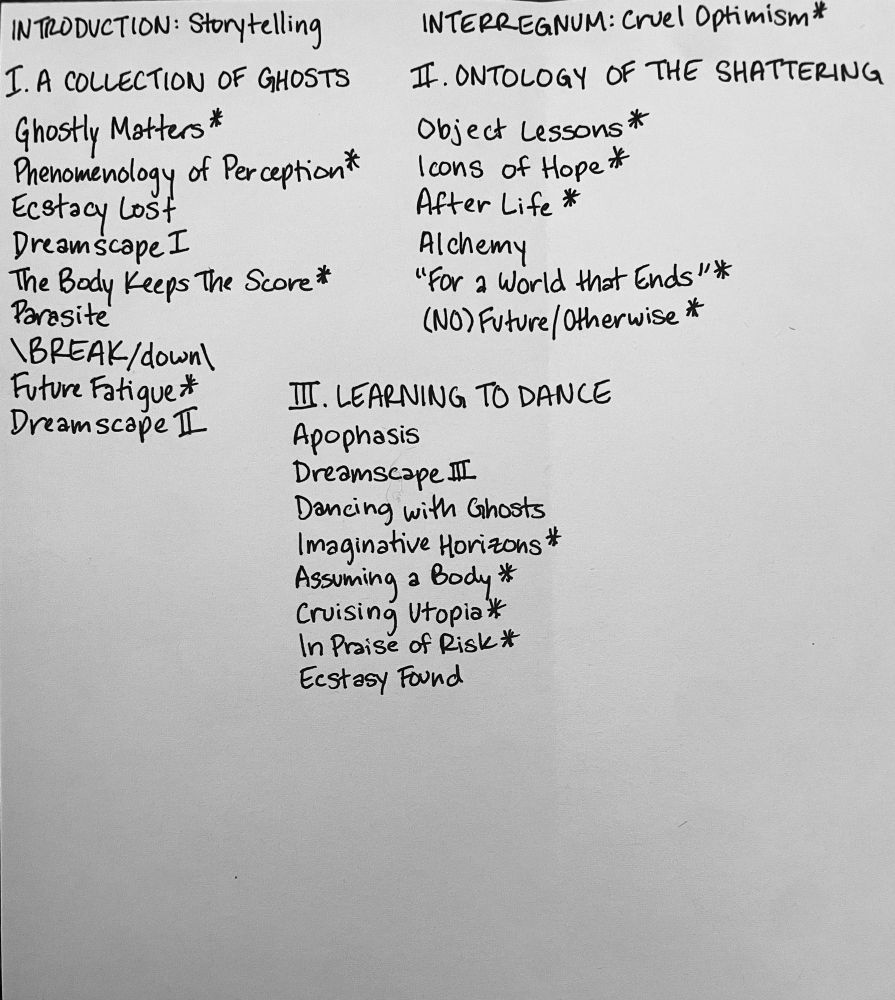 INTRODUCTION: Storytelling
I. A COLLECTION OF GHOSTS
Ghostly Matters*
Phenomenology of Perception*
Ecstacy Lost
Dreamscape I
The Body Keeps The Score*
Parasite
\BREAK/down\
Future Fatigue*
Dreamscape II
INTERREGNUM: Cruel Optimism*
II. ONTOLOGY OF THE SHATTERING
Object Lessons*
Icons of Hope*
After Life*
Alchemy
"For a World that Ends"*
(NO) Future/Otherwise*
III. LEARNING TO DANCE
Apophasis
Dreamscape III
Dancing with Ghosts
Imaginative Horizons*
Assuming a Body*
Cruising Utopia*
In Praise of Risk*
Ecstasy Found